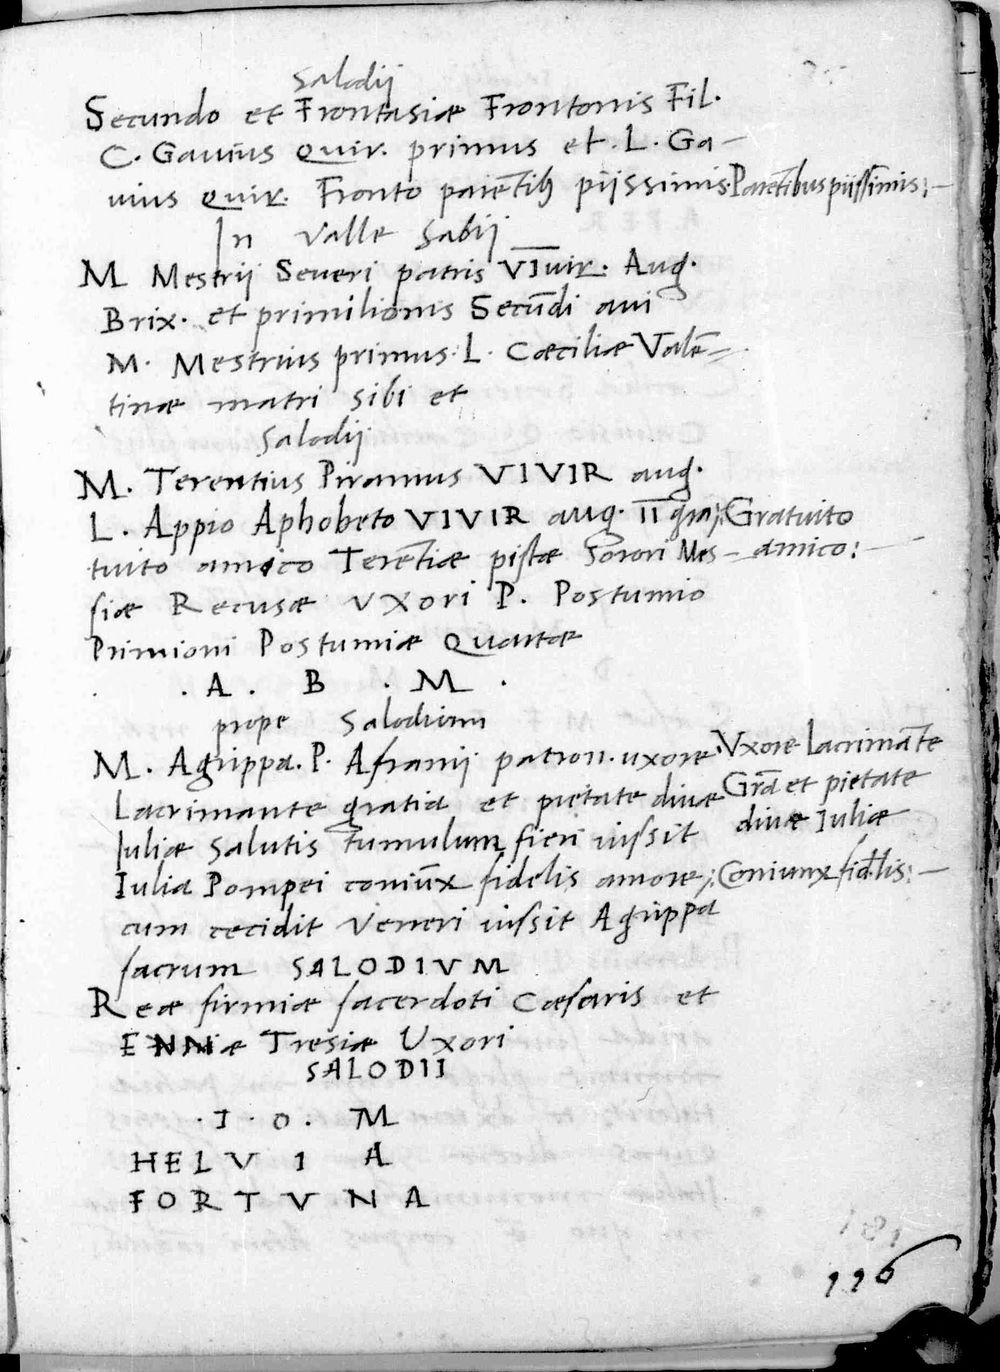 Salodii
Secundo et Frontasiæ Frontonis Fil.
C. Gavius Quir. primus et. L. Ga-
vius quir. Fronto parentib piissimis. Parentibus piissimis:-
In Valle Sabii
M Mestrii Severi patris VIvir. Aug.
Brix. et primilionis Secundi avi
M. Mestrius primus. L. Cæciliæ Valē=
tinæ matri sibi et
Salodii
M. Terentius Piramus VIVIR aug.
L. Appio Aphobeto VIVIR aug. II gra/: Gratuito
tuito amico Terētiæ pistæ Sorori Mes- amico:-
siæ Recusæ Uxori P. Postumio
Primioni Postumiæ Quartæ
. A . B . M .
prope Salodium
M. Agrippa. P. Afranii patron. uxore Vxore Lacrimāte
Lacrimante gratia et pietate divæ Grā et pietate
Iuliæ Salutis tumulum fieri iussit divæ Iuliæ
Iulia Pompei coniūx fidelis amore/: Coniunx fidelis:-
cum cecidit Veneri iussit Agrippa
sacrum SALODIVM
Reæ firmiæ sacerdoti Cæsaris et
ENNiæ Tresiæ Uxori
SALODII
. I . O . M
HELVI A
FORTVNA
181
116